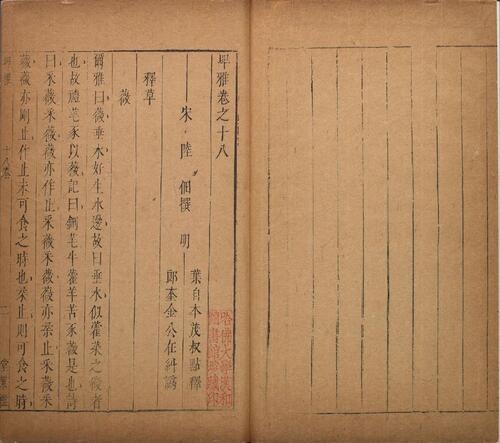 埤雅卷之十八
宋 陸 佃撰 明
葉自本茂叔點釋
郎奎金公在糾譌
釋草
薇
爾雅曰薇垂水好生水邊故曰垂水似藿菜之
也故禮芼豕以薇記曰鉶芼牛藿羊苦豕薇是也詩
曰采薇采薇薇亦作止采薇采薇薇亦柔止采薇采
薇薇亦剛止作止未可食之時也柔止則可食之時
埤雅 十八卷 一 堂策檻
哈佛大學漢和
圖書館珍藏印